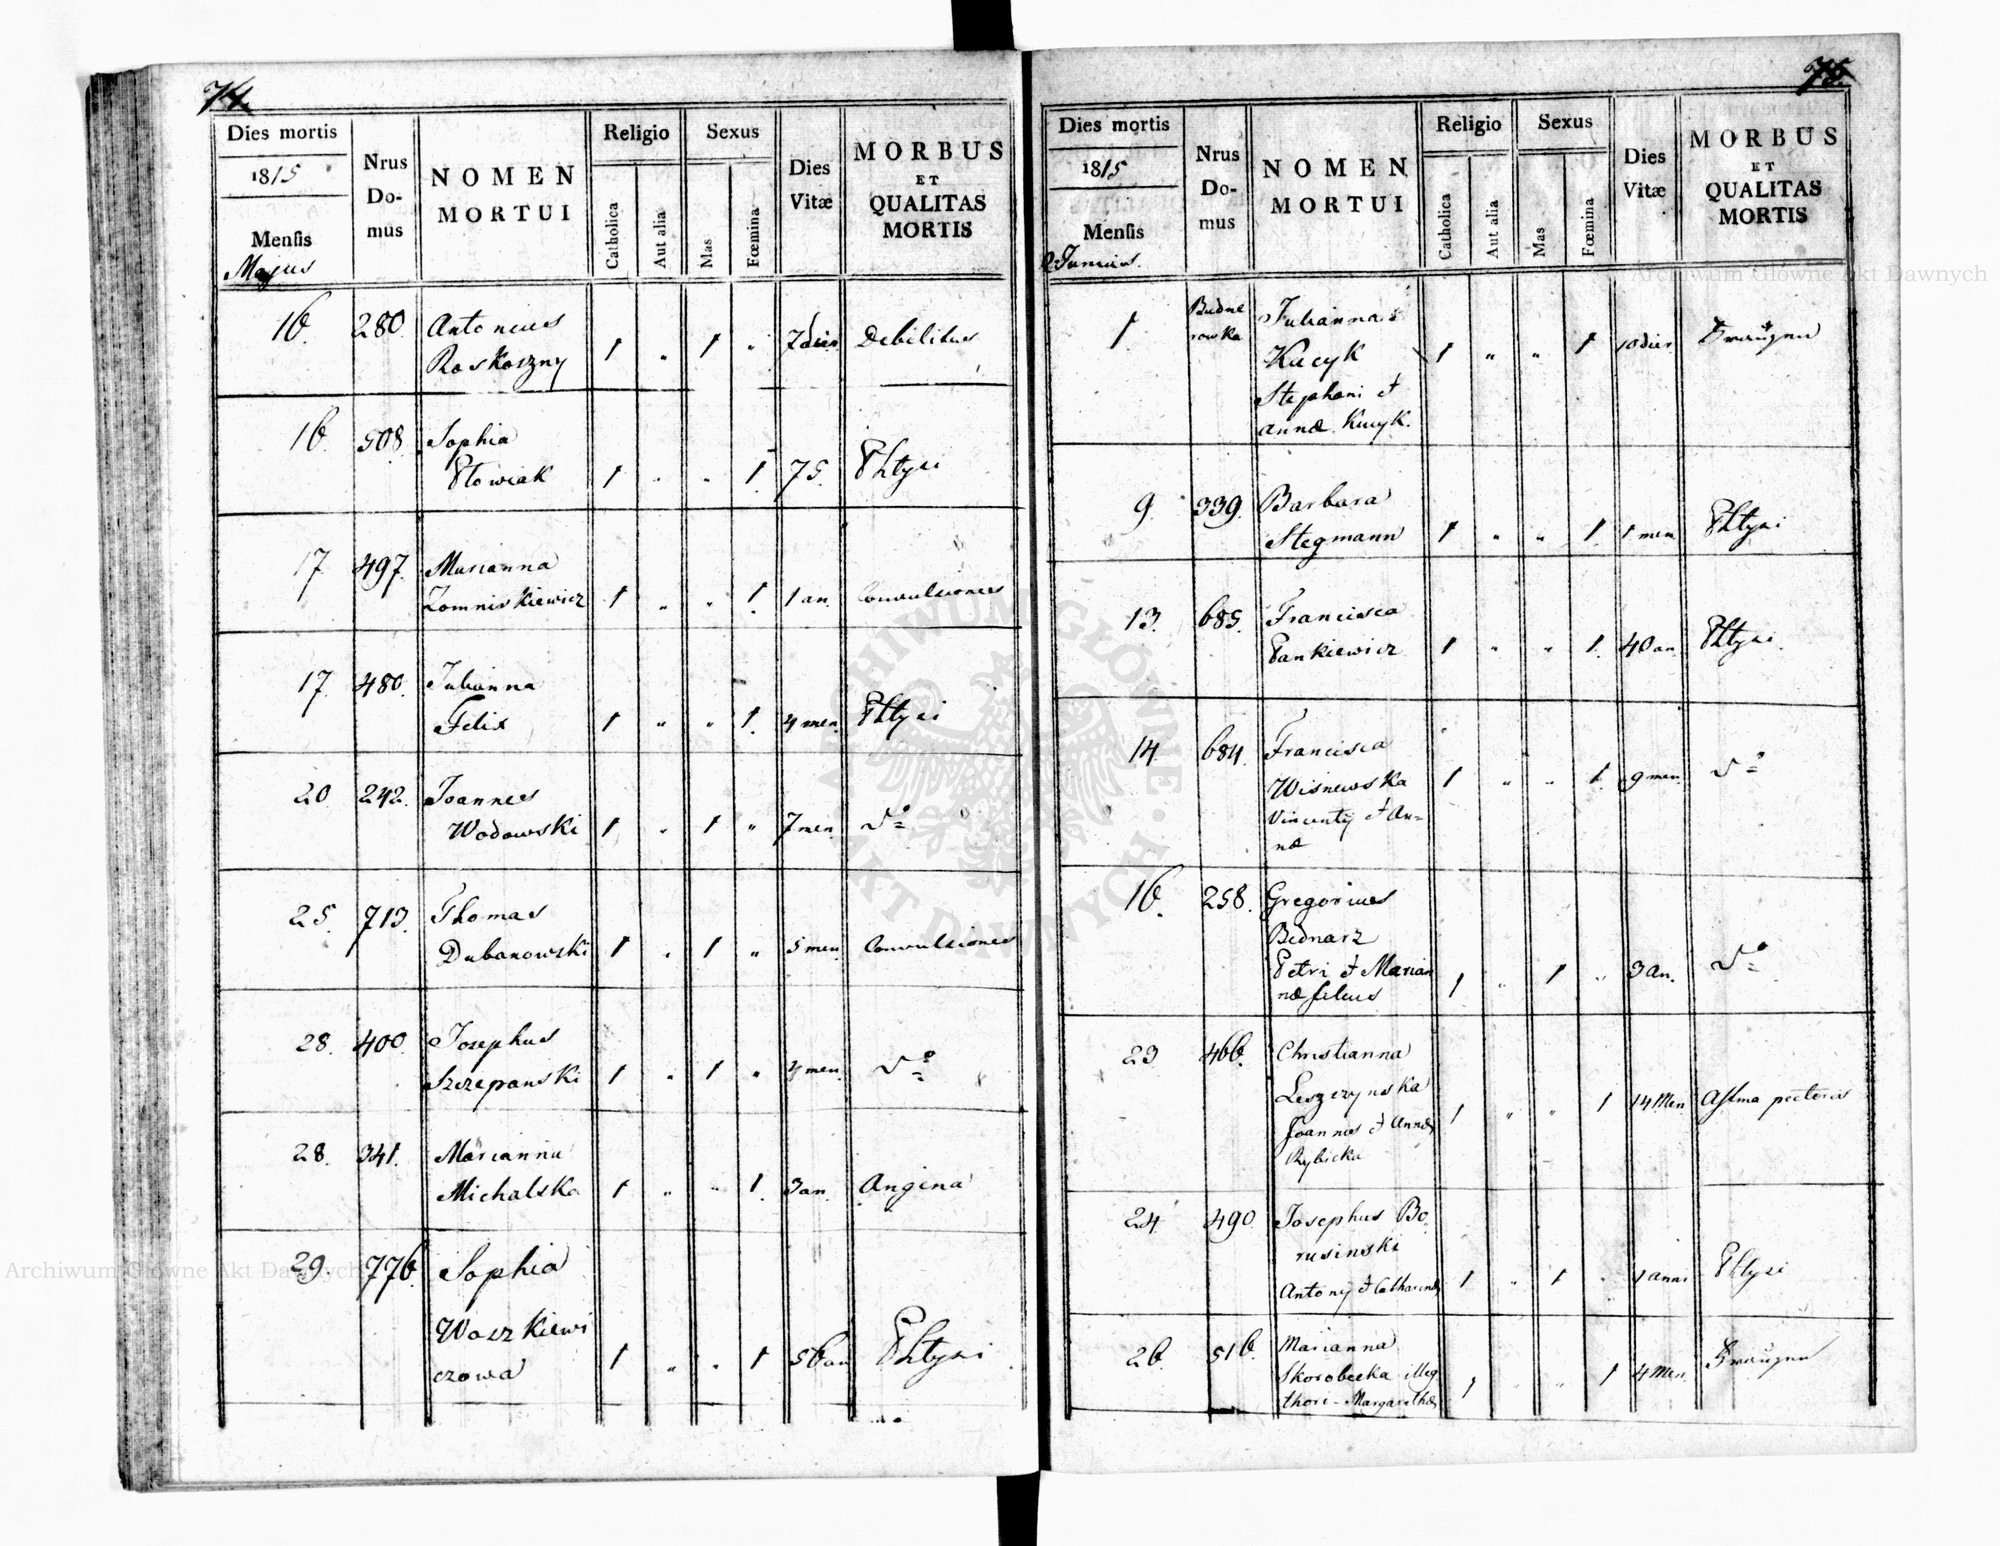 74.
Dies mortis
1815
Mensis
Majus
Nrus
Do-
mus
NOMEN
MORTUI
Religio
Catholica
Aut alia
Sexus
Mas
Fœmina
Dies
Vitæ
MORBUS
ET
QUALITAS
MORTIS
16. 280. Antonius
Roskoszny 1 „ 1 „ 7 dies Debilitas
16. 508. Sophia
Ptowiak 1 „ „ 1. 75. Phtysi
17. 497. Marianna
Zomniskiewicz 1 „ „ 1. 1 an. Convulsiones
17. 480. Julianna
Felix 1 „ „ 1. 4 men. Phtysi
20. 242. Joannes
Wodowski 1 „ 1 „ 7 men. do
25. 713. Thomas
Dubanowski 1 „ 1 „ 5 men. Convulsiones
28. 400. Josephus
Szczepanski 1 „ 1 „ 4 men. do
28. 341. Marianna
Michalska 1 „ „ 1. 3 an. Angina
29. 776. Sophia
Woszkiewi
czowa 1 „ „ 1 56 an Phtysi
75.
Dies mortis
1815
Mensis
Junius.
Nrus
Do-
mus
NOMEN
MORTUI
Religio
Catholica
Aut alia
Sexus
Mas
Fœmina
Dies
Vitæ
MORBUS
ET
QUALITAS
MORTIS
1. Julianna
Kucyk 1 „ „ 1 10 dies
Stephani et
Annæ Kucyk.
9. 339. Barbara
Stegmann 1 „ „ 1. 1 men Phtysi
13. 685. Francisca
Pankiewicz 1 „ „ 1. 40 an. Phtysi.
14. 684. Francisca
Wisnewska 1 „ „ 1. 9 men. do
Vincenty et An=
næ
16. 258. Gregorius
Bednarz
Petri et Marian
næ filius 1 „ 1 „ 3 an. do
23 466. Christianna
Leszczynska
Joannes et Annæ 1 „ „ 1 14 Men Astma pectoris
Rybicka
24. 490. Josephus Bo
rusinski
Antony et Catharinæ 1 „ 1 „ 1 anni Phtysi
26. 516. Marianna
Skorobecka illeg
thori - Margarethæ 1 „ „ 1 4 Men.
Archiwum Główne Akt Dawnych
Archiwum Główne Akt Dawnych
ARCHIWUM GŁÓWNE
AKT DAWNYCH